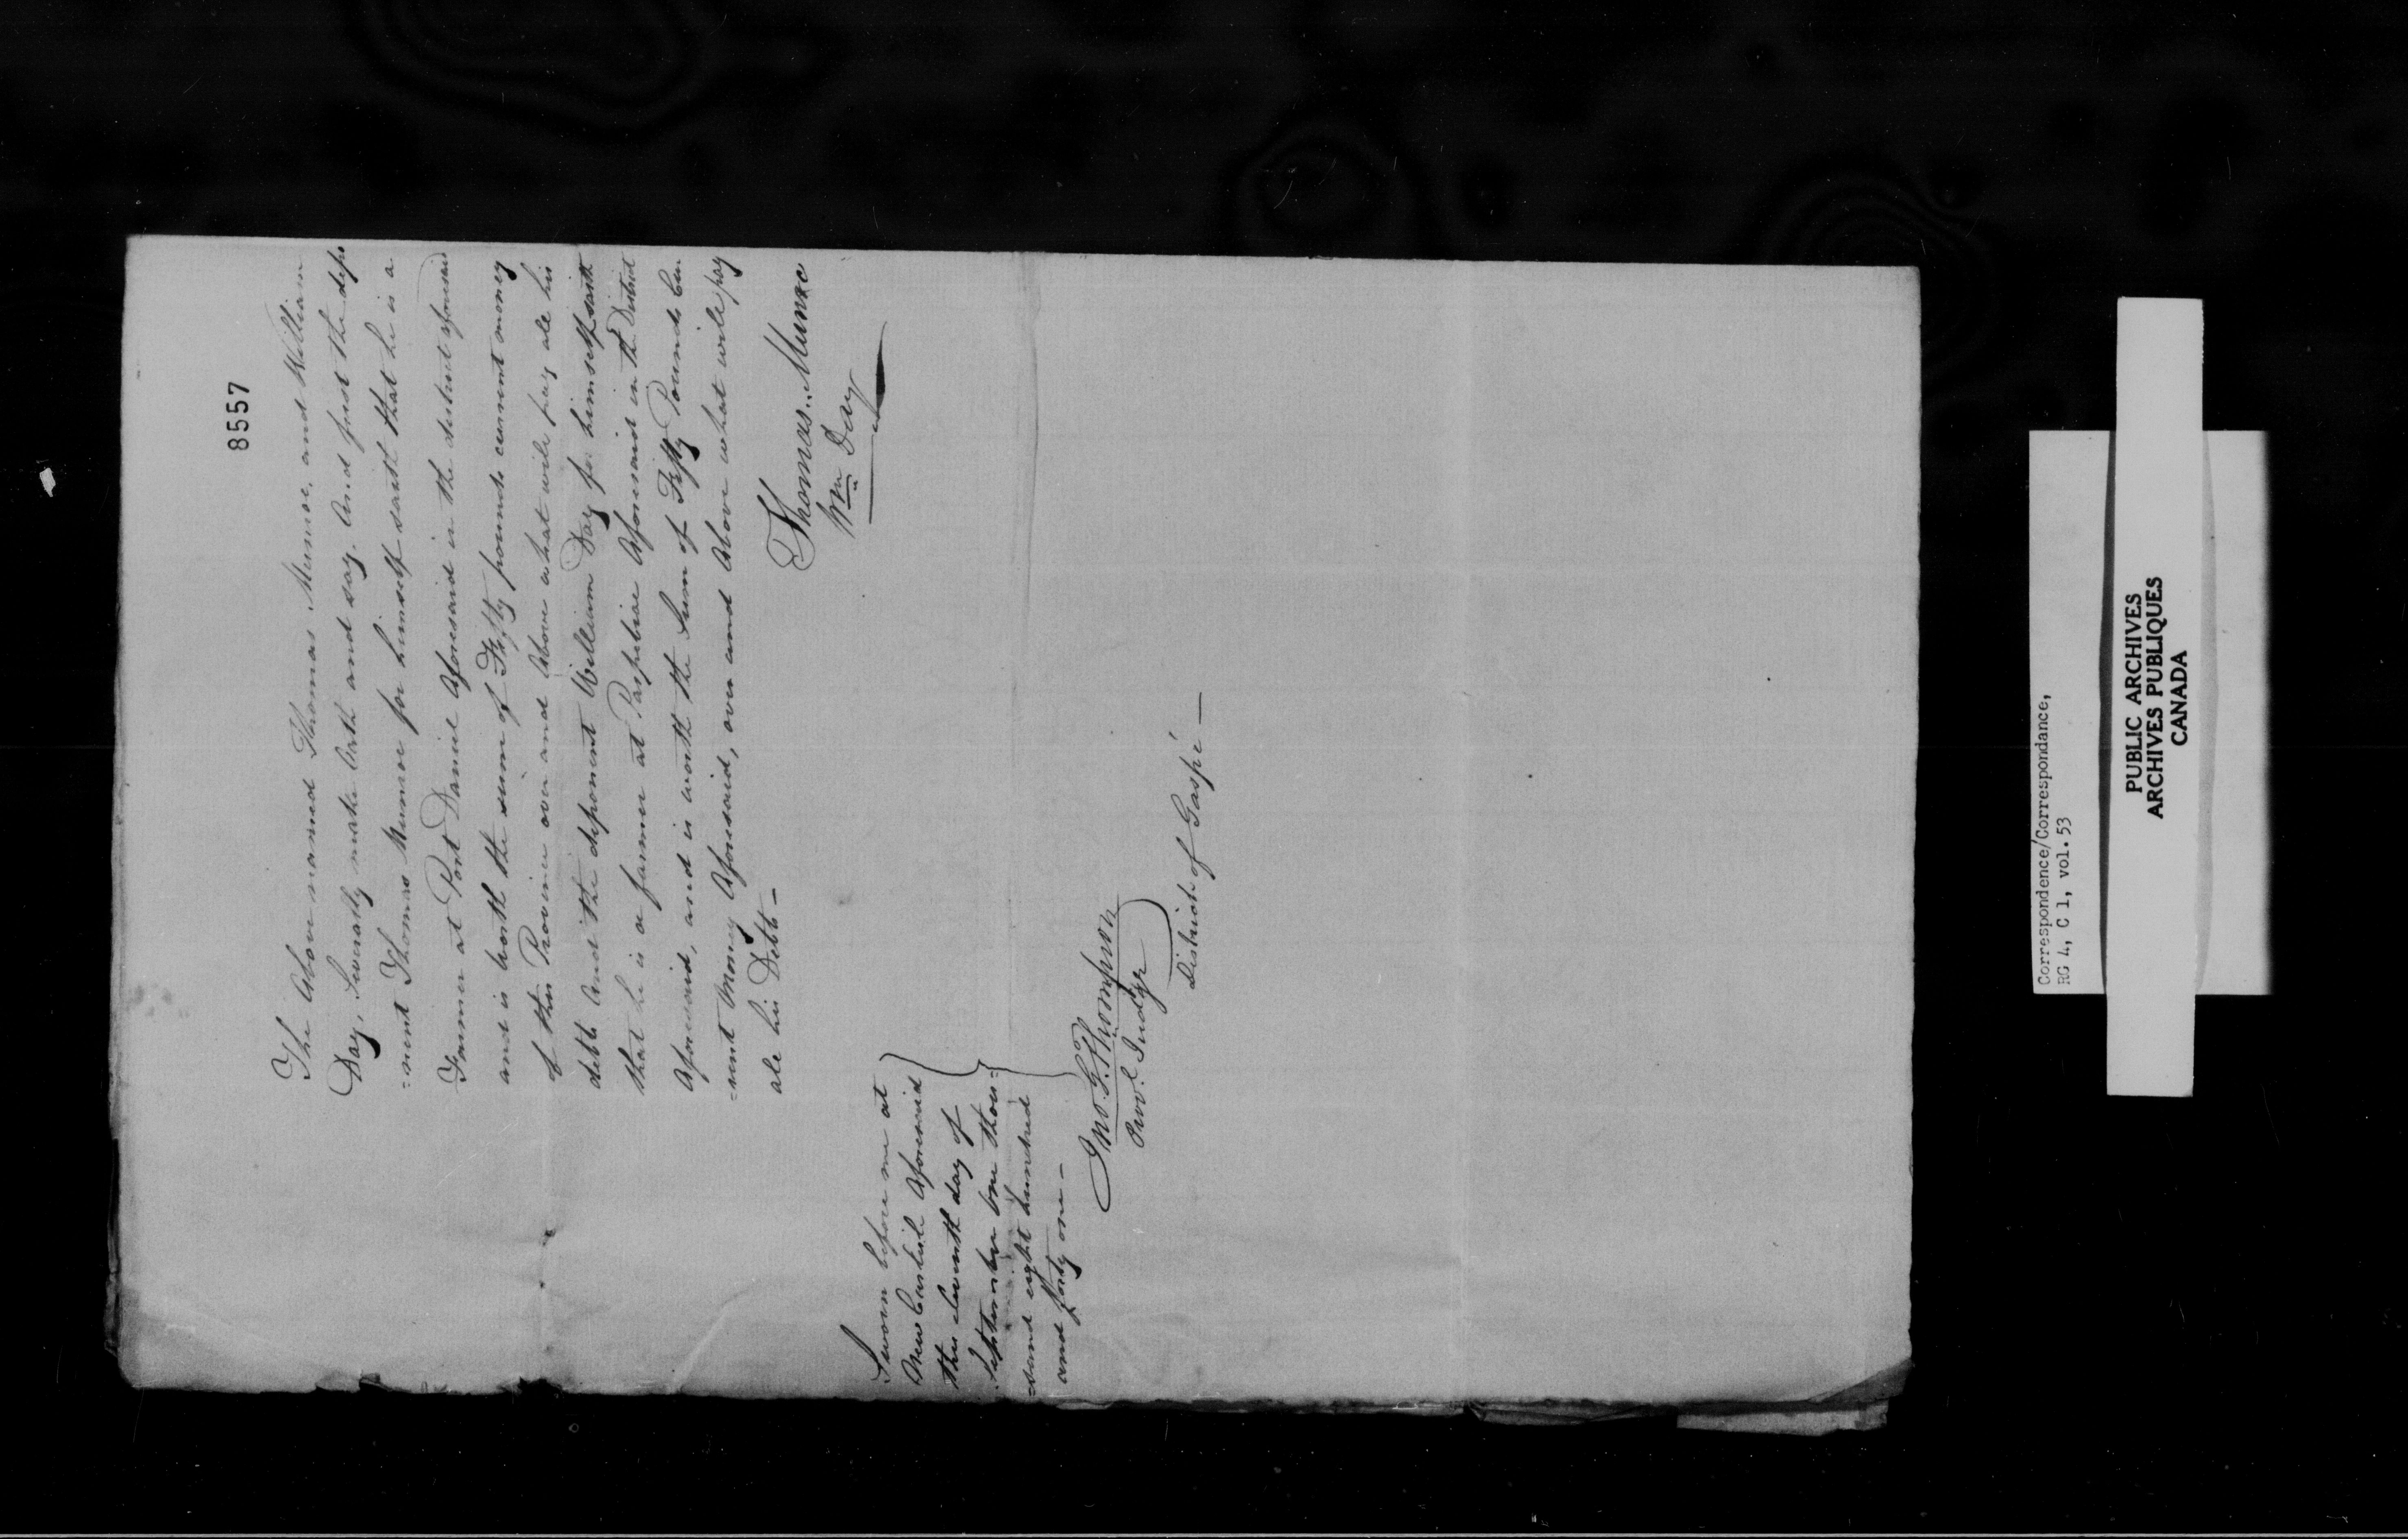 8557
The Above named Thomas Munroe, and William
Day, Severally make Oath and say. And first the depo
=nent Thomas Munroe for himself saith that he is a
Farmer at Port Daniel Aforesaid in the district aforesaid
and is worth the sum of Fifty pounds current money
of this Province over and Above what will pay all his
debts And the deponent William Day for himself saith
that he is a farmer at Paspebiac Aforesaid in the District
Aforesaid, and is worth the Sum of Fifty Pounds Cur
=rent Money Aforesaid, over and Above what will pay
all his Debts -
Thomas Munroe
Wm Day
Sworn before me at
New Carlisle Aforesaid
this Seventh day of
September One thou=
=sand eight hundred
and forty one -
Jno. G. Thompson
Provl. Judge
District of Gaspé -
Correspondence/Correspondance,
RG 4, C 1, vol. 53
PUBLIC ARCHIVES
ARCHIVES PUBLIQUES
CANADA